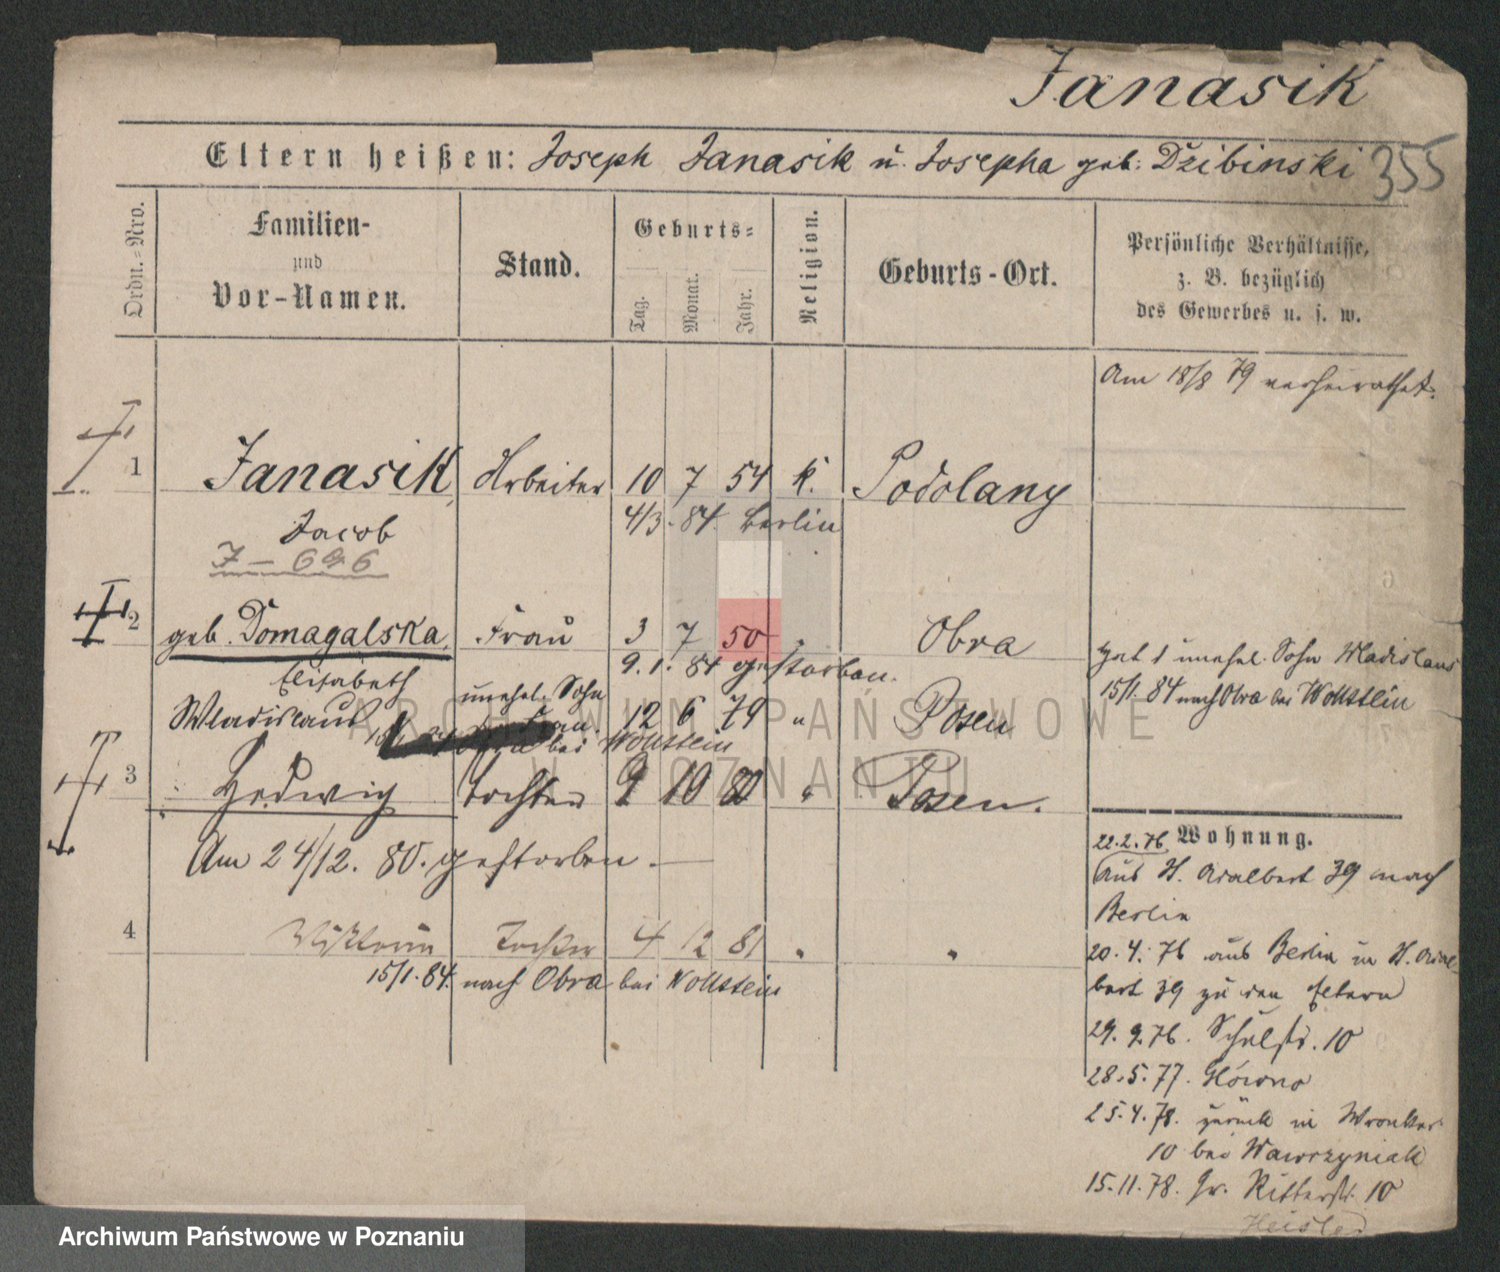 Janasik
Eltern heißen: Joseph Janasik u. Josepha geb: Dzibinski 355
Ordn.=Nro.
Familien-
und
Vor-Namen.
Stand.
Geburts=
Tag.
Monat.
Jahr.
Religion.
Geburts-Ort.
Persönliche Verhältnisse,
z. B. bezüglich
des Gewerbes u. s. w.
Am 18/8 79 verheirathet.
1 Janasik Arbeiter 10 7 54 k. Podolany
Jacob 4/3. 84. Berlin
7 - 696
2 geb. Domagalska Frau 3 7 50 " Obra
Elisabeth 9. 1. 84 gestorben.
hat 1 unehel. Sohn Wladislaus
15/1. 84 nach Obra bei Wollstein
Wladislaus unehel. Sohn 12 6 79 " Posen
bei Wollstein
3 Hedwig Tochter 9 10 80 " Posen.
Am 24/12. 80. gestorben.
4 Tochter 4 12 81 " "
15/1. 84. nach Obra bei Wollstein
Wohnung.
22.2.76
Aus H. Adalbert 39 nach
Berlin
20. 4. 76 aus Berlin in H. Adal-
bert 39 zu den Eltern
29. 9. 76. Schulstr. 10
28. 5. 77. Główno
25. 4. 78. zurück in Wronker
10 bei Wawrzyniak
15. 11. 78. Gr. Ritterstr. 10
Heisler
ARCHIWUM PAŃSTWOWE
W POZNANIU
Archiwum Państwowe w Poznaniu